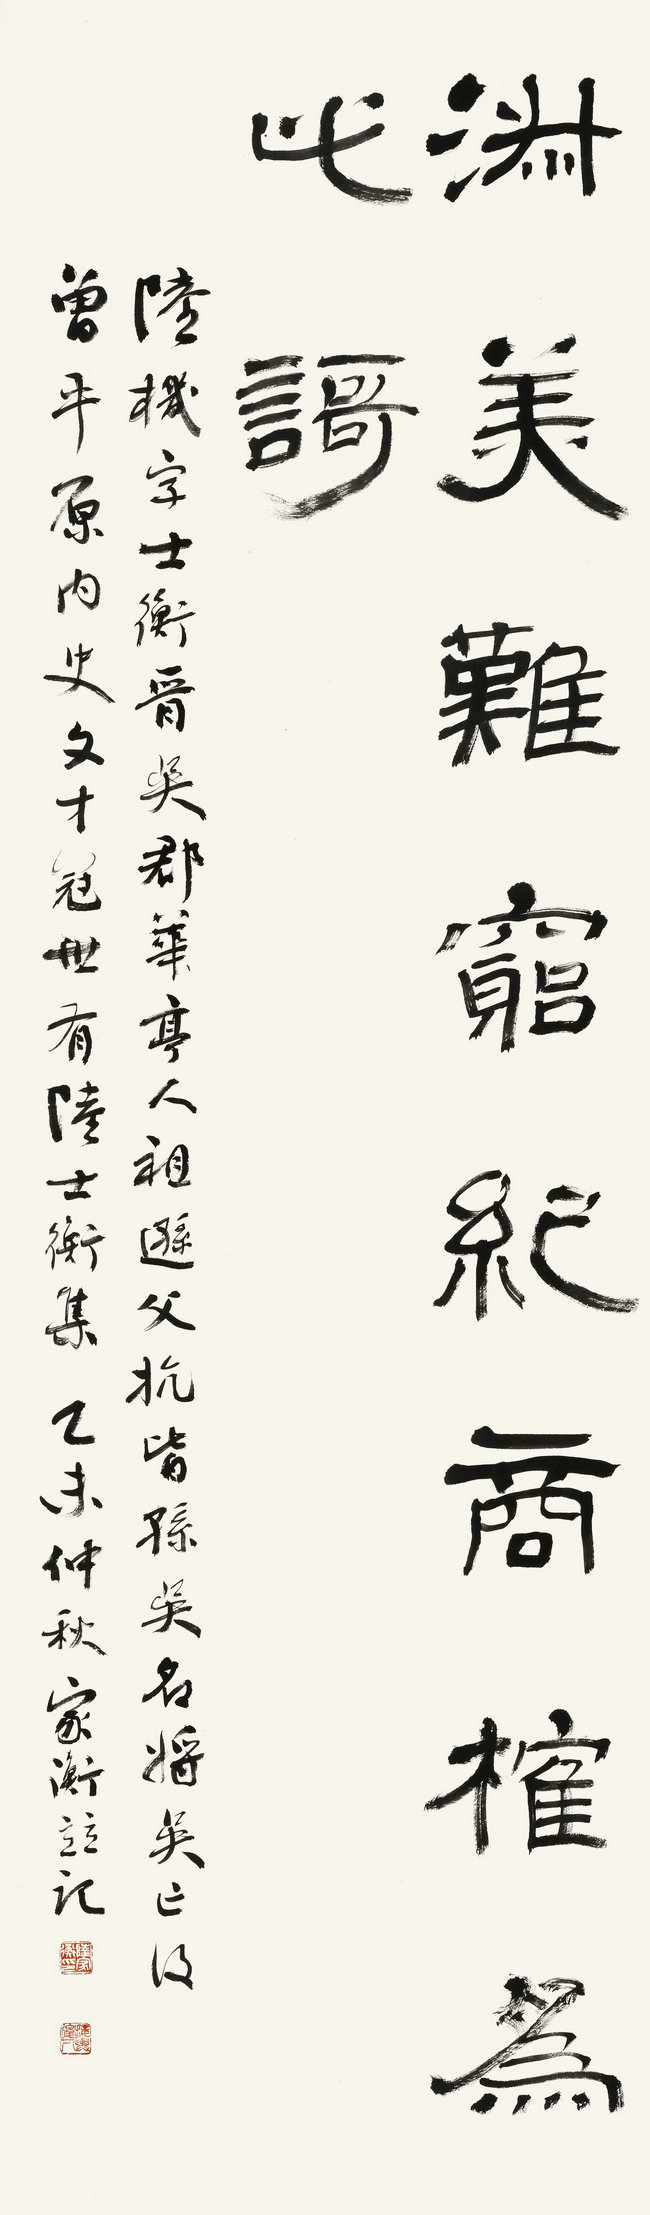 淑美難窮紀商榷為
此謌
陸機字士衡晉吳郡華亭人祖遜父抗皆孫吳名將吳亡後
曾平原內史文才冠世有陸士衡集 乙未仲秋家衡並記